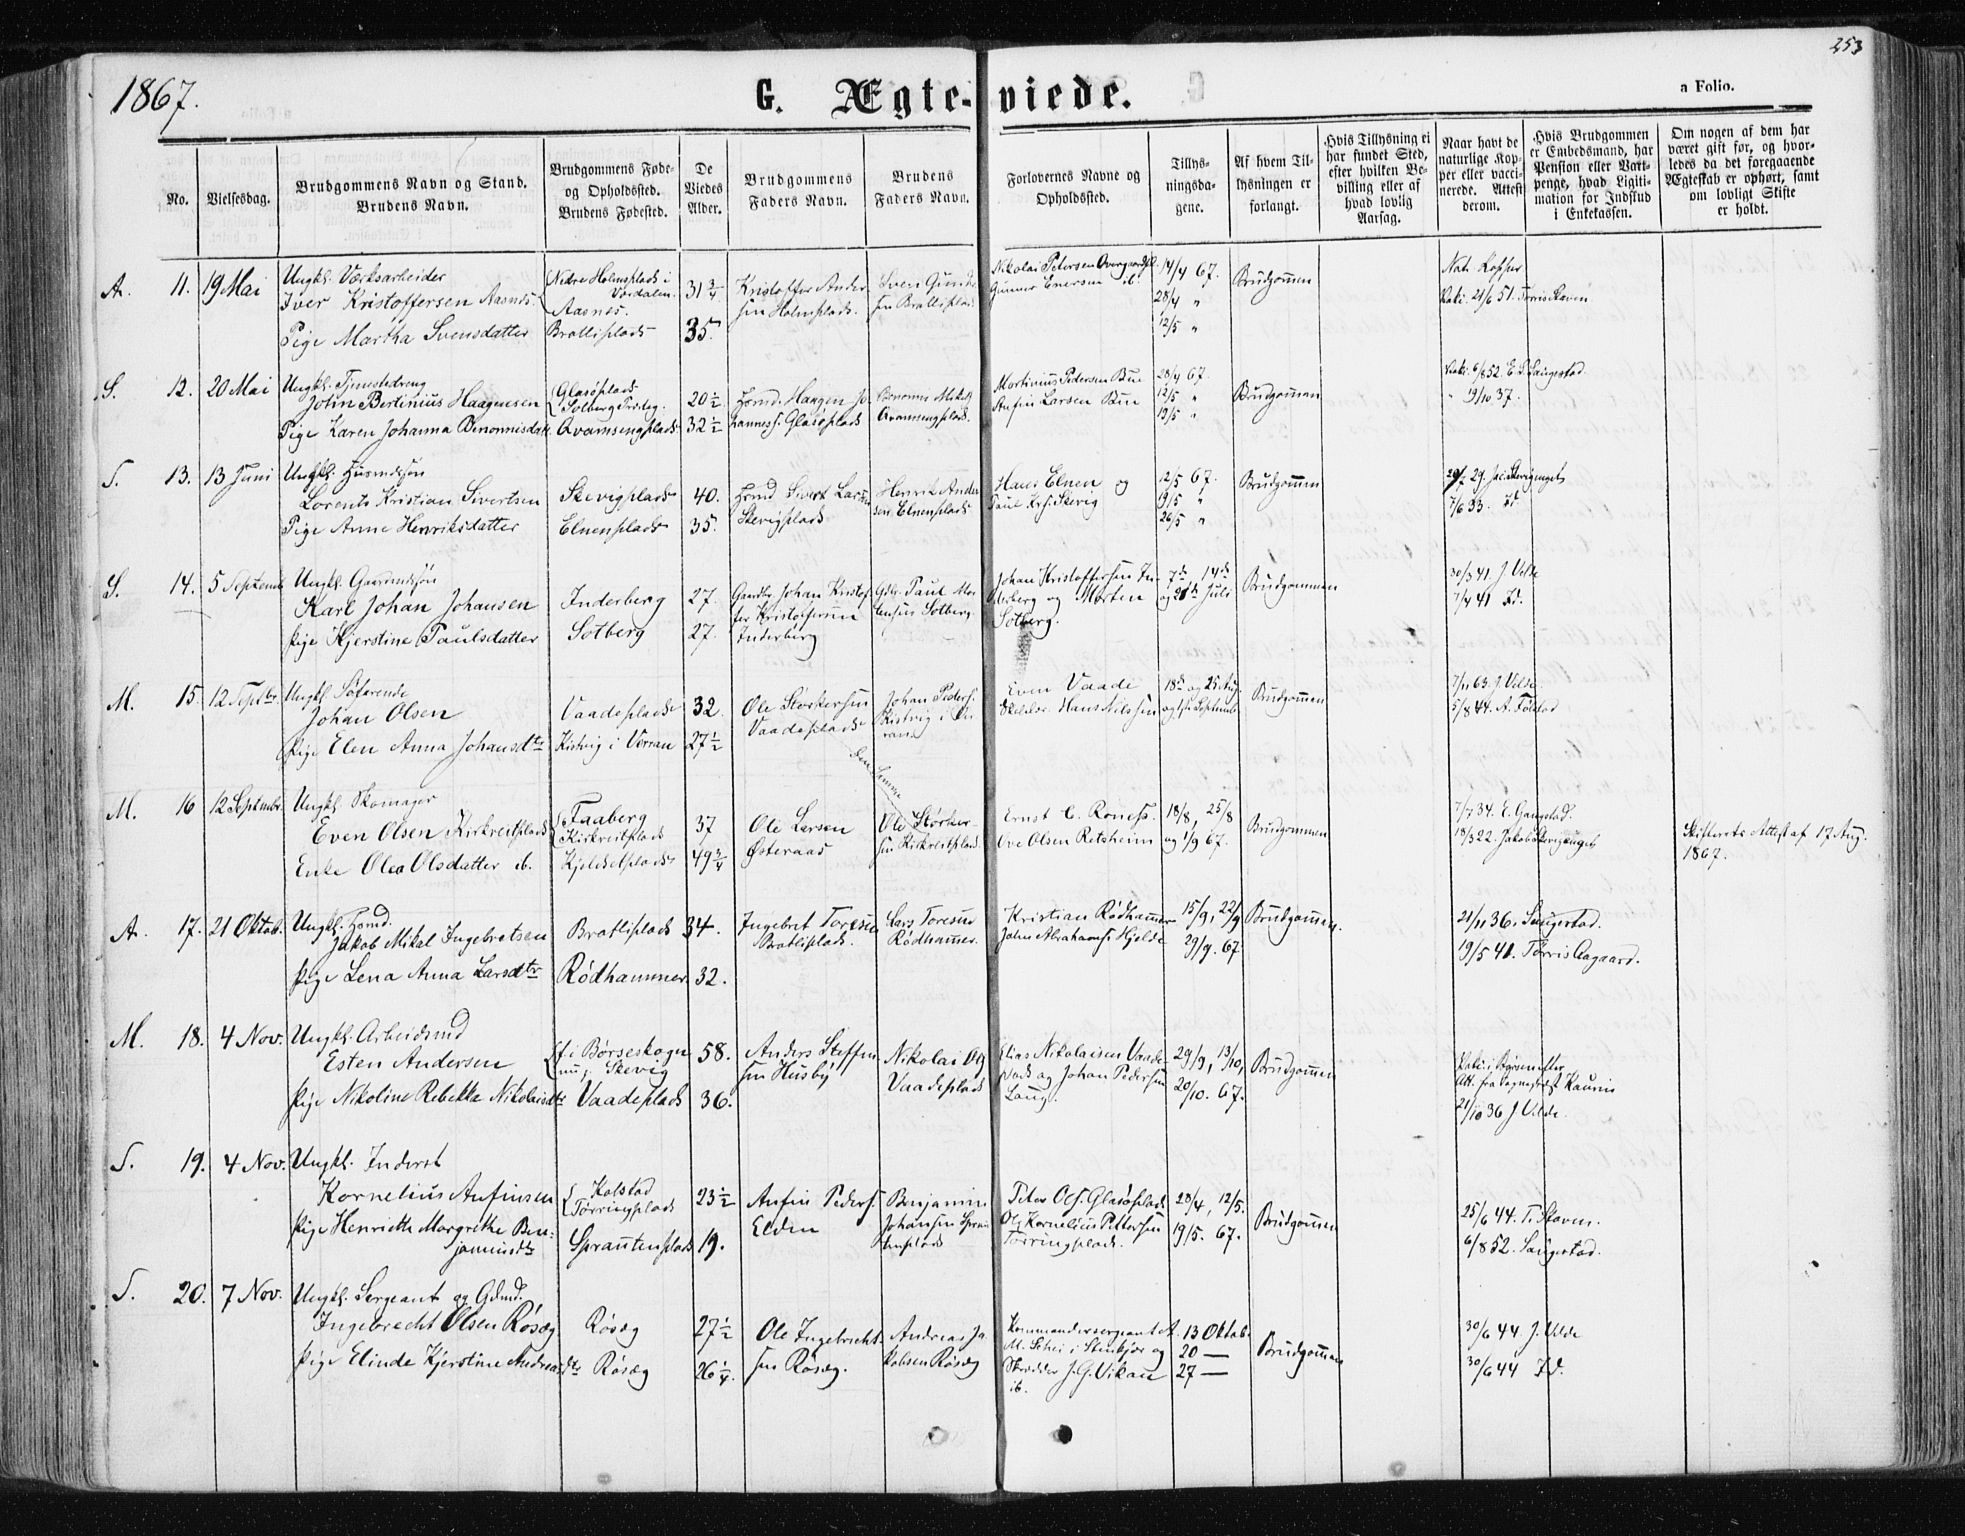 253
1867.
G. Ægte-viede.
a Folio.
No.
Vielsesdag.
Brudgommens Navn og Stand.
Brudens Navn.
Brudgommens Føde-
og Opholdssted.
Brudens Fødested.
De
Viedes
Alder.
Brudgommens
Faders Navn.
Brudens
Faders Navn.
Forlovernes Navne og
Opholdssted.
Tillys-
ningsda-
gene.
Af hvem Til-
lysningen er
forlangt.
Hvis Tillysning ei
har fundet Sted,
efter hvilken Be-
villing eller af
hvad lovlig
Aarsag.
Naar havt de
naturlige Kop-
per eller vacci-
nerede. Attest
derom.
Hvis Brudgommen
er Embedsmand, har
Pension eller Vart-
penge, hvad Ligiti-
mation for Indskud
i Enkekassen.
Om nogen af dem har
været gift før, og hvor-
ledes da det foregaaende
Ægteskab er ophørt, samt
om lovligt Skifte
er holdt.
A. 11. 19 Mai
Ungkl. Værksarbeider
Iver Kristoffersen Aasnes
Pige Martha Svensdatter
Nedre Holmsplads i
Værdalen.
Aasnes.
Bratliplads
31 3/4
35.
Kristoffer Ander
sen Holmsplads.
Sven Gunder
sen Bratliplads
Nikolai Petersen Overgaardspl.
Gunner Enersen ib.
14/4 67.
28/4 "
12/5 "
Brudgommen
Nat. Kopper
Vakc. 21/6 51. Torris Staven
S. 12. 20 Mai
Ungkl. Tjenestedreng
John Bertinius Haagensen
Pige Karen Johanna Benonnisdatt.
Glasøplads
Solberg
Qvamsengplads
20 1/2
32 1/2
Husmd. Haagen Jo
hanness. Glasøplads
Benonni Mikels.
Qvamsengplads.
Mortinius Pedersen Bue
Anfin Larsen Bue
28/4 67.
12/5 "
19/5 "
Brudgommen
Vakc. 6/8 52. E. S. Saugestad.
" 19/10 37.
S. 13. 13 Juni
Ungkl. Husmdssøn
Lorents Kristian Sivertsen
Pige Anne Henriksdatter
Skevigplads
Elnenplads
40.
35.
Husmd Sivert Larsen
Skevigplads
Henrik Ander
sen Elnenplads
Hans Elnen og
Paul Krs. Skevig
12/5 67.
19/5 "
26/5 "
Brudgommen
29. Jac. Skevigenget
7/6 33. Id
S. 14. 5 Septemb
Ungkl. Gaardmdssøn
Karl Johan Johansen
Pige Kjerstine Paulsdatter
Inderberg
Sotberg
27.
27.
Gaardbr. Johan Kristof
fer Kristoffersen
Inderberg
Gdbr. Paul Mor
tensen Sotberg
Johan Kristoffersen In-
derberg og Morten
Sotberg.
7de, 14de
og 21de Juli
Brudgommen
30/3 41. J. Velde
7/4 41 Id.
M. 15. 12 Septbr
Ungkl. Søfarende
Johan Olsen
Pige Elen Anna Johansdtr
Vaadeplads
Kistvig i Verran
32.
27 1/2
Ole Storkersen
Vaadeplads
Johan Peders.
Kistvig i Ver
ran
Even Vaade
Hans Nilssen
18de og 25 Aug.
og 1ste Septemb
Brudgommen
7/11 63. J. Velde
5/8 44. A. Følstad
Den Samme
M. 16 12 Septembr.
Ungkl. Skomager
Even Olsen Kirkreitplads
Enke Olea Olsdatter ib.
Faaberg
Kirkreitplads
Kjeldsetplads
37
49 3/4
Ole Larsen
Østeraas
Ole Størker
sen Kirkreitplads
Ernst C. Roness.
Ove Olsen Retsheim
18/8, 25/8
og 1/9 67.
Brudgommen
7/7 34. E. Gaugstad.
18/3 22. Jakob Skevigenget
Skifterets Attest af 17 Aug.
1867.
A. 17. 21 Oktob.
Ungkl. Husmd.
Jakob Mikal Ingebretsen
Pige Lena Anna Larsdtr
Bratliplads
Rødhammer
34.
32.
Ingebret Toresen
Bratliplads.
Lars Toresen
Rødhammer.
Kristian Rødhamer
John Abrahams. Hjelde
15/9, 22/9
29/9. 67.
Brudgommen.
21/11 36. Saugestad.
19/5 41. Torris Aagaard.
M. 18. 4 Nov.
Ungkl. Arbeidsmd
Esten Andersen
Pige Nikoline Rebekka Nikolaisdtr
f. i Børseskogn
nu p. Skevig
Vaadeplads
58.
36.
Anders Steffen
sen Husby
Nikolai Ols
Vaadeplads
Elias Nikolaisen Vaade-
plads og Johan Pedersen
Laug.
29/9, 13/10,
20/10. 67.
Brudgommen
Vakc. i Børsen efter
Att. fra Sognepræst Kaurin
21/10 36 J. Velde.
S. 19. 4 Nov.
Ungkl. Inderst
Kornelius Anfinsen
Pige Henriette Margrethe Ben-
jaminsdtr
Kolstad
Tørringplads
Sprautenplads
23 1/2
19.
Anfin Peders.
Elden
Benjamin
Johansen Sprau
tenplads
Peter Ols. Glasøplads
Og Kornelius Pettersen
Tørringplads.
28/4, 12/5.
19/5. 67.
Brudgommen
25/6 44. T. Staven.
6/8 52. Saugestad.
S. 20. 7 Nov.
Ungkl. Sergeant og Gdmd.
Ingebrecht Olsen Røsæg
Pige Elinde Kjerstine Andreasdtr
Røsæg
Røsæg
27 1/2
26 1/4.
Ole Ingebrecht-
sen Røsæg.
Andreas Ja-
kobsen Røsæg
Kommandersergeant A.
M. Schei i Stenkjær og
Skrædder J. G. Vikan
ib.
13 Oktob.
20 —
27 —
Brudgommen
30/6 44. J. Velde
30/6 44 Id.